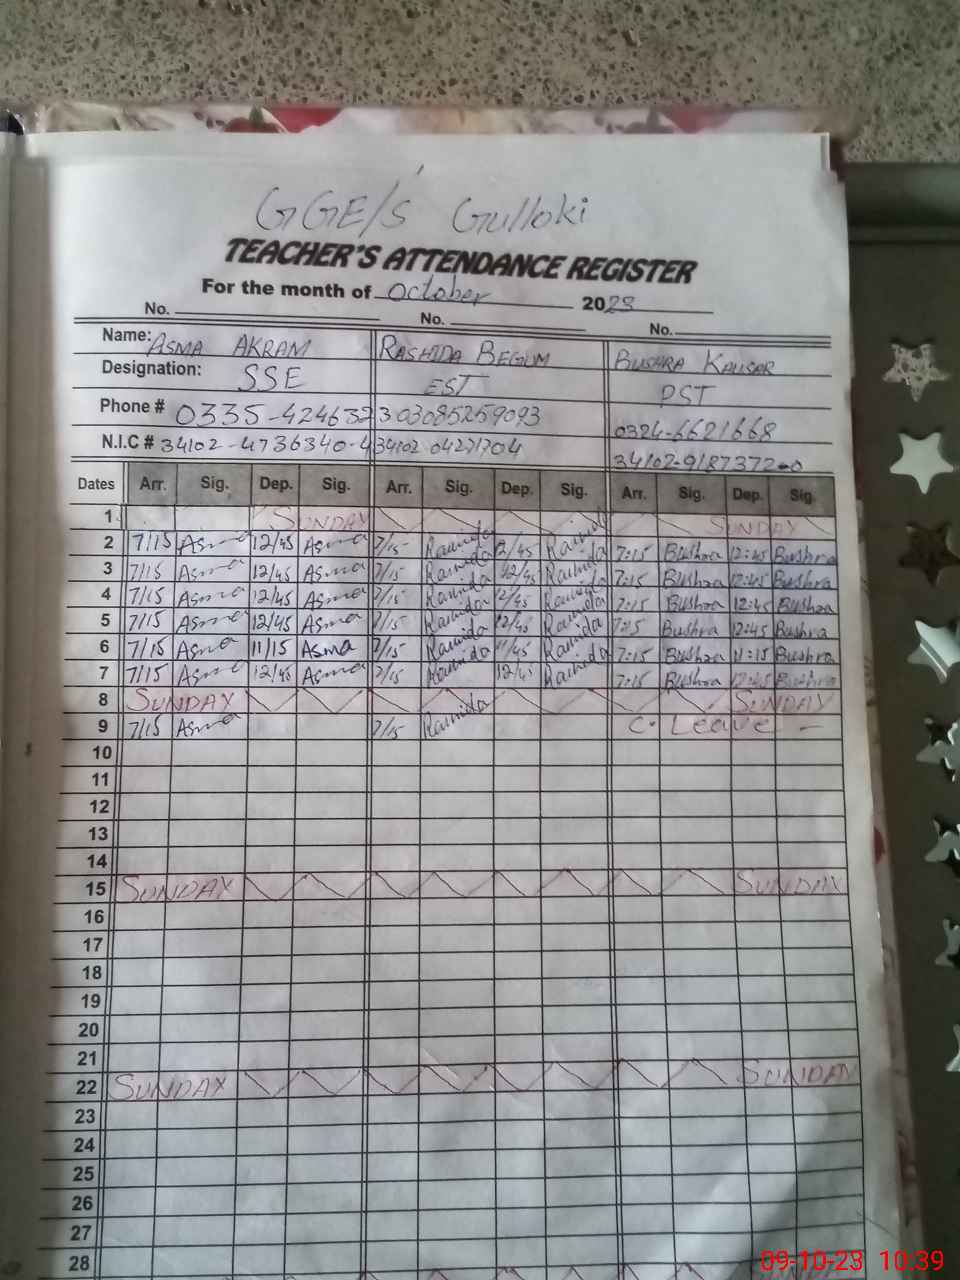 GGE/S Gulloki
TEACHER'S ATTENDANCE REGISTER
For the month of October 2023
No. No. No.
Name: ASMA AKRAM RASHIDA BEGUM BUSHRA KAUSAR
Designation: SSE EST PST
Phone # 0335-4246323 03085259093 0324-6621668
N.I.C # 34102-4736340-4 34102 04271704 34102-9187372-0
Dates Arr. Sig. Dep. Sig. Arr. Sig. Dep. Sig. Arr. Sig. Dep. Sig.
1 SUNDAY SUNDAY
2 7/15 Asma 12/45 Asma 7/15 Rashida 12/45 Rashida 7:15 Bushra 12:45 Bushra
3 7/15 Asma 12/45 Asma 7/15 Rashida 12/45 Rashida 7:15 Bushra 12:45 Bushra
4 7/15 Asma 12/45 Asma 7/15 Rashida 12/45 Rashida 7:15 Bushra 12:45 Bushra
5 7/15 Asma 12/45 Asma 7/15 Rashida 12/45 Rashida 7:15 Bushra 12:45 Bushra
6 7/15 Asma 11/15 Asma 7/15 Rashida 11/45 Rashida 7:15 Bushra 11:15 Bushra
7 7/15 Asma 12/45 Asma 7/15 Rashida 12/45 Rashida 7:15 Bushra 12:45 Bushra
8 SUNDAY SUNDAY
9 7/15 Asma 7/15 Rashida C. Leave -
10
11
12
13
14
15 SUNDAY SUNDAY
16
17
18
19
20
21
22 SUNDAY SUNDAY
23
24
25
26
27
28
09-10-23 10:39